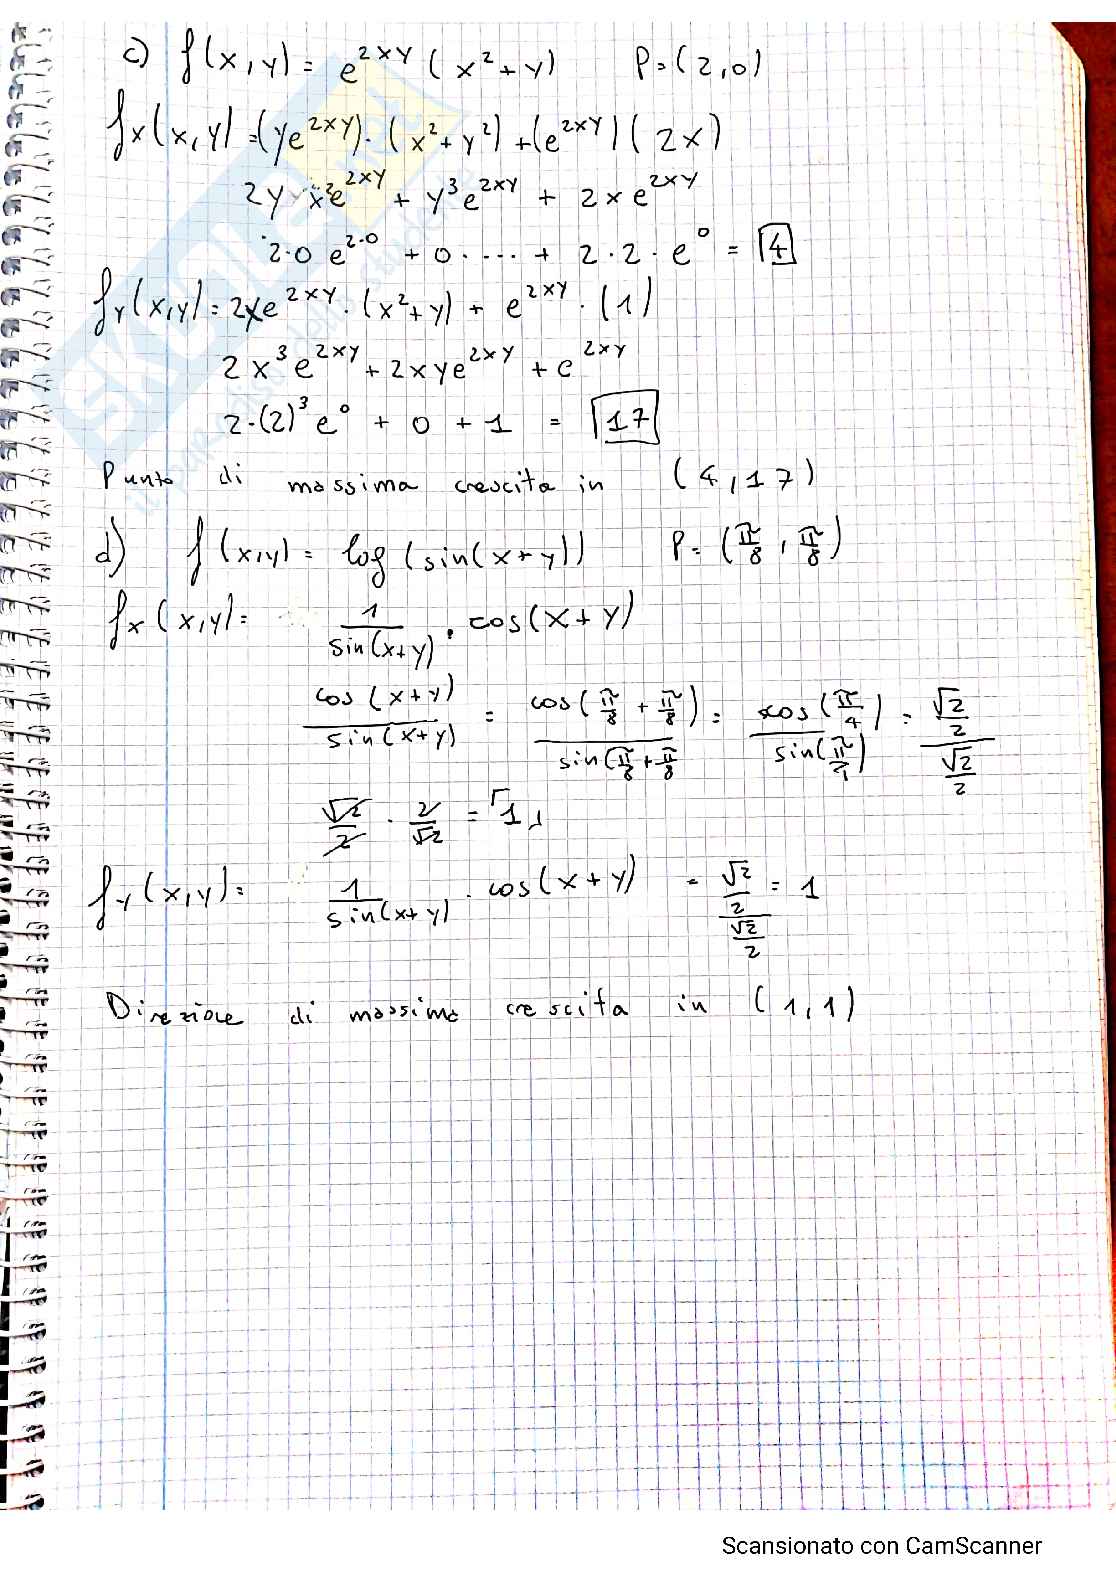 c) f(x,y) = e^{2xy} (x² + y)   P = (2,0)
fx(x,y) = (ye^{2xy}) · (x² + y²) + (e^{2xy}) (2x)
2y x² e^{2xy} + y³ e^{2xy} + 2x e^{2xy}
2·0 e^{2·0} + 0 · ... + 2·2·e⁰ = 4
fy(x,y) = 2xe^{2xy} · (x² + y) + e^{2xy} · (1)
2x³e^{2xy} + 2xye^{2xy} + e^{2xy}
2·(2)³e⁰ + 0 + 1 = 17
Punto di massima crescita in (4,17)
d) f(x,y) = log(sin(x+y))   P = (π/8, π/8)
fx(x,y) = 1/sin(x+y) · cos(x+y)
cos(x+y)/sin(x+y) = cos(π/8 + π/8)/sin(π/8 + π/8 = cos(π/4)/sin(π/4) = √2/2 / √2/2
√2/2 · 2/√2 = 1
fy(x,y) = 1/sin(x+y) · cos(x+y) = √2/2 / √2/2 = 1
Direzione di massima crescita in (1,1)
Scansionato con CamScanner